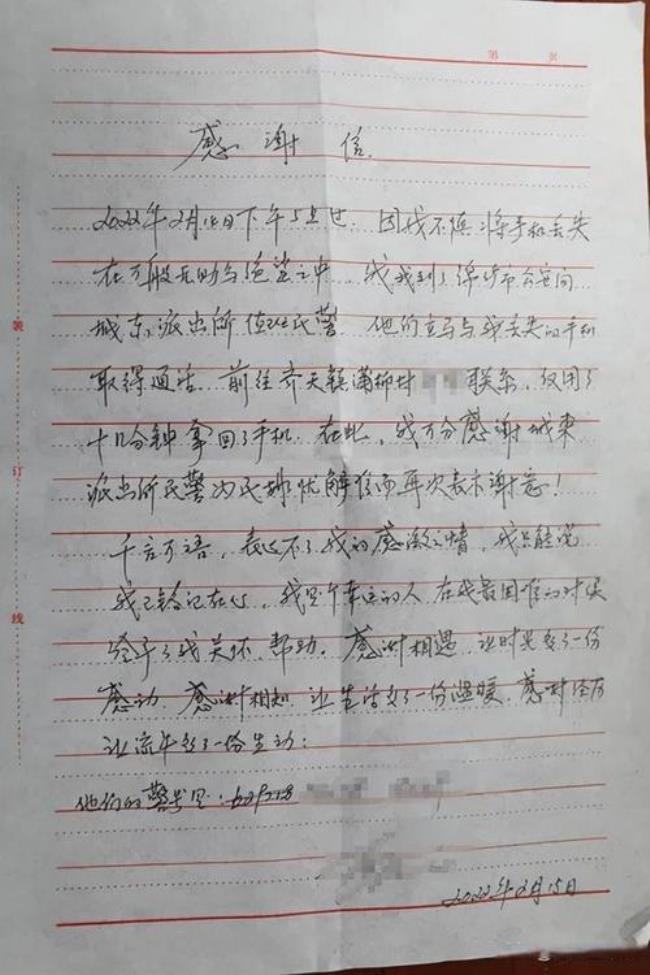 第 页
感谢信
2022年2月14日下午5点过，因我不慎将手机丢失
在万般无助与绝望之中，我找到了绵竹市公安局
城东派出所值班民警，他们立马与我丢失的手机
取得通话，前往齐天镇满柳村 联系，仅用了
十几分钟拿回了手机，在此，我万分感谢城东
派出所民警为民排忧解难而再次表示谢意！
千言万语，表达不了我的感激之情，我只能说
我已铭记在心，我是个幸运的人，在我最困难的时候
给予了我关怀、帮助，感谢相遇，让时光多了一份
感动，感谢相知，让生活多了一份温暖，感谢经历
让流年多了一份生动：
他们的警号是：
2022年2月15日
装
订
线